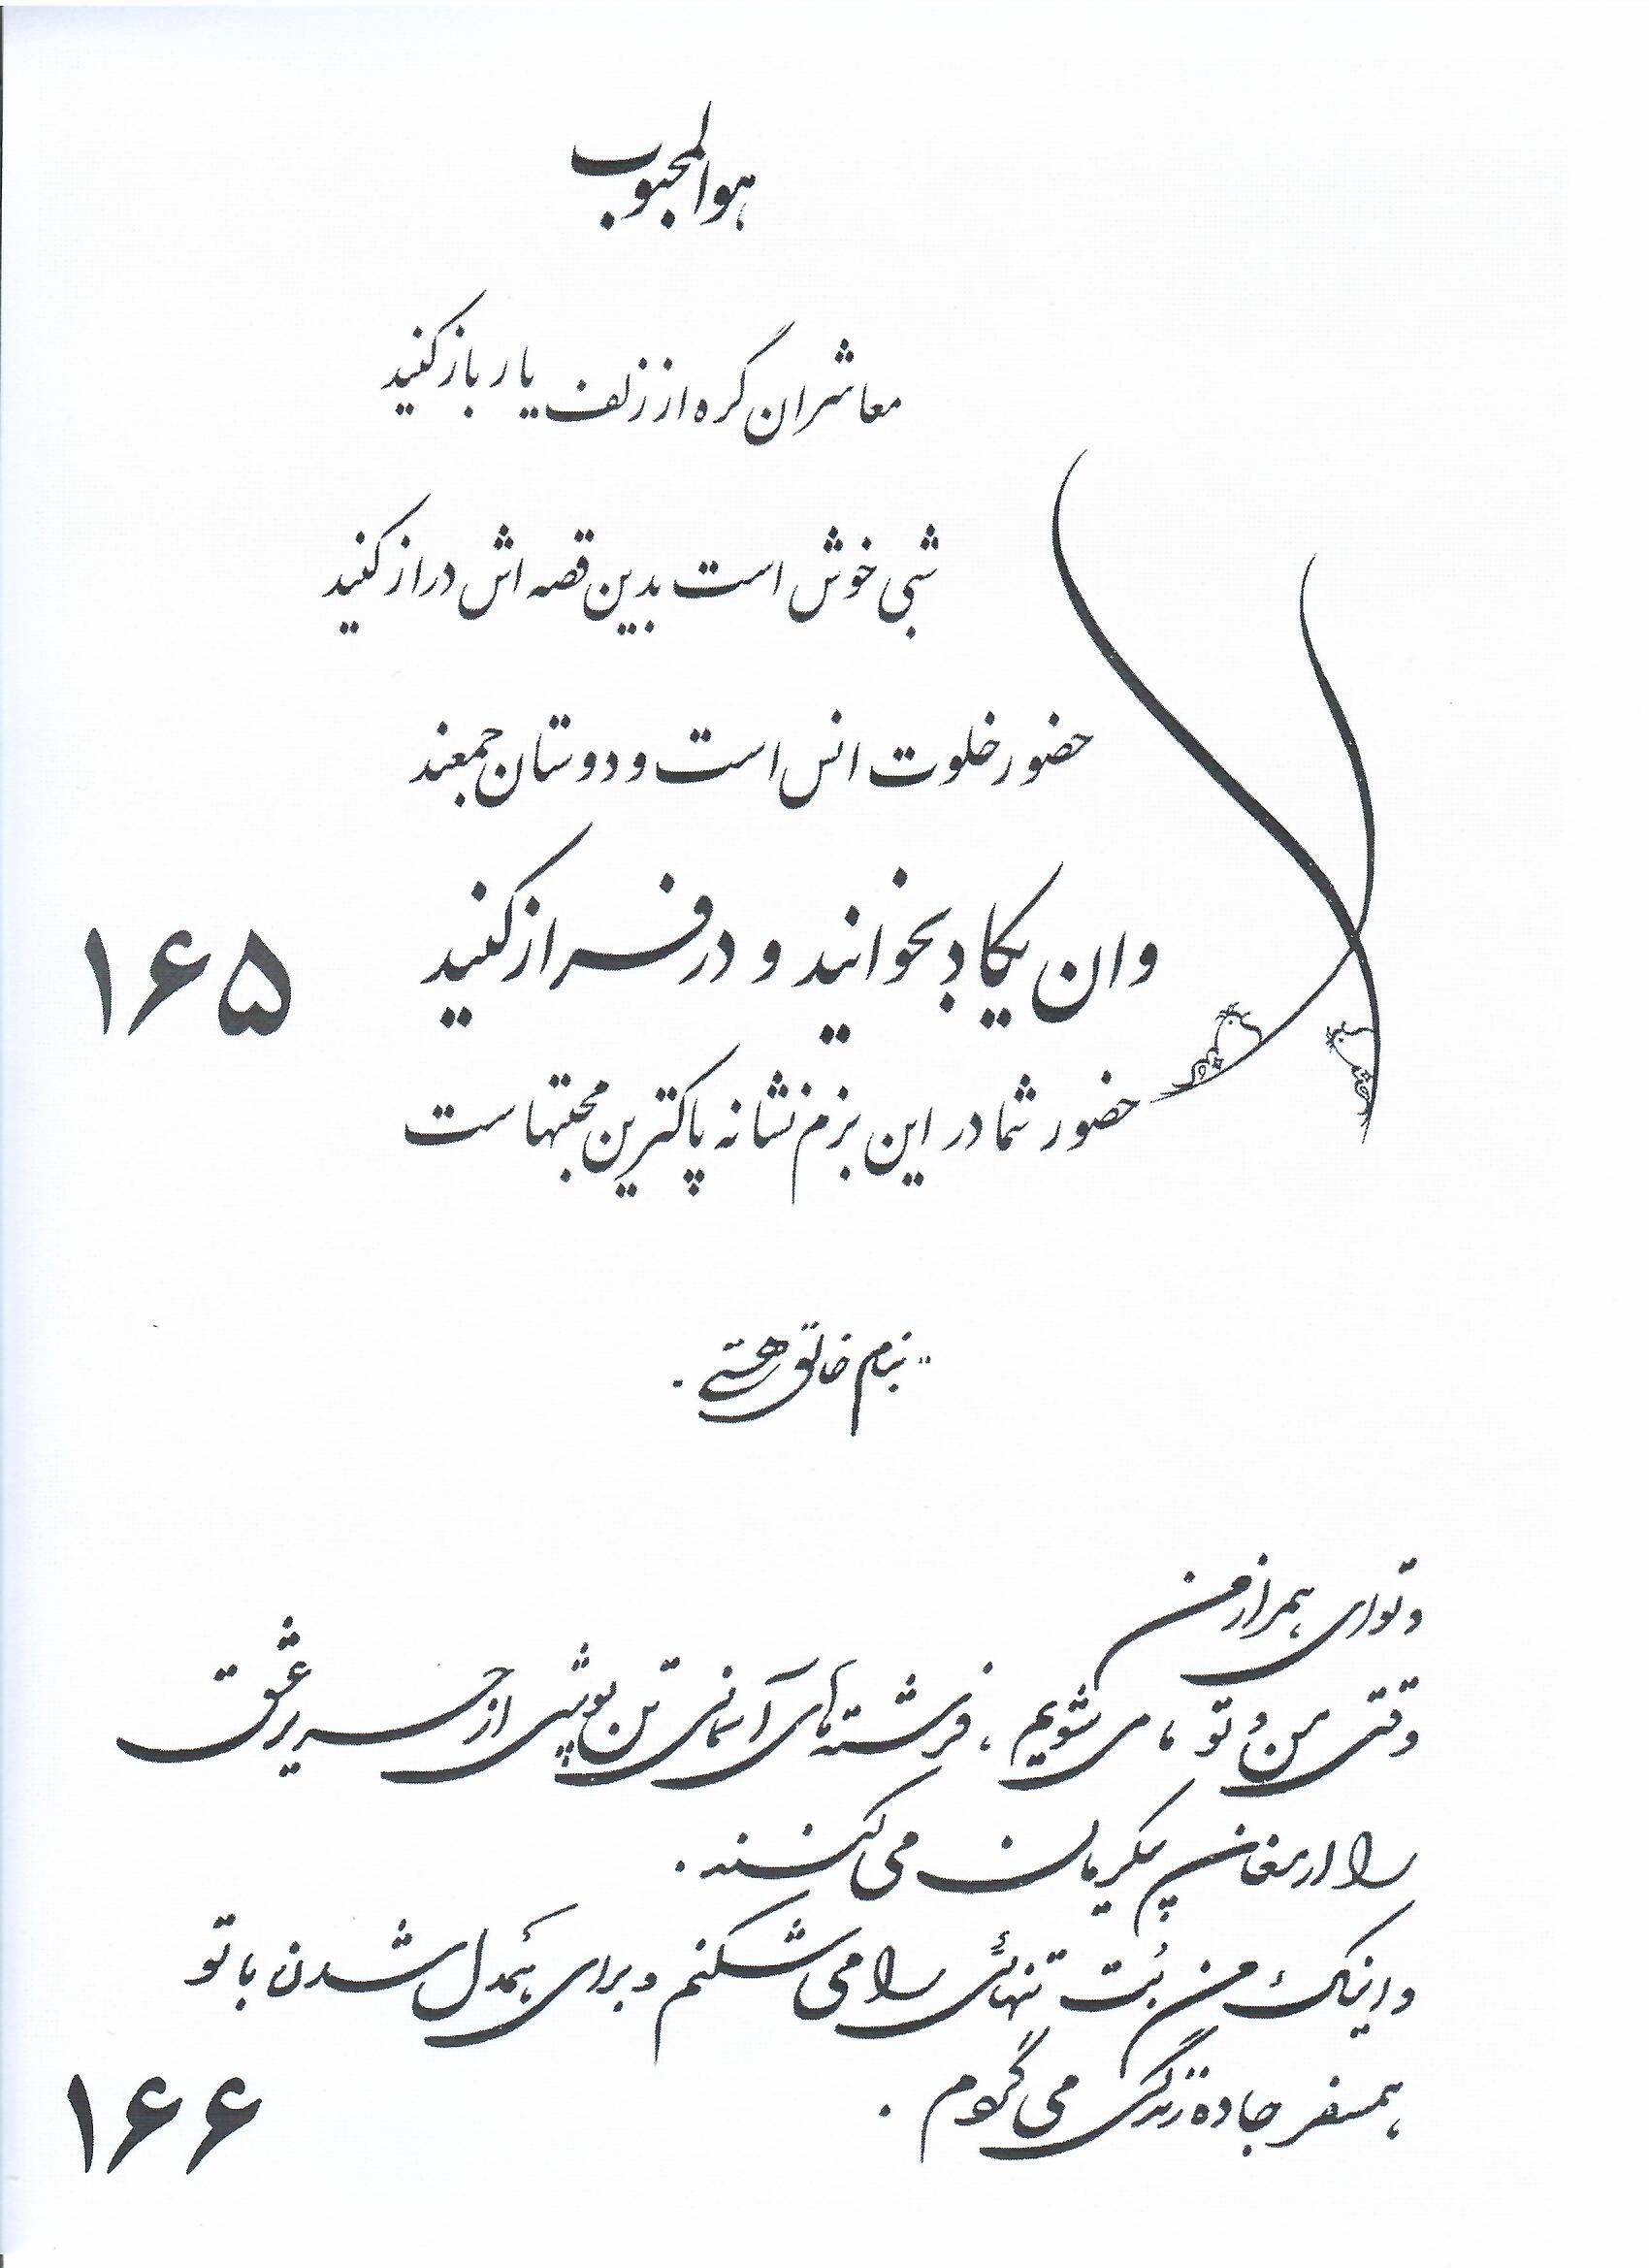 هوالمحبوب
معاشران گره از زلف یار باز کنید
شبی خوش است بدین قصه اش دراز کنید
حضور خلوت انس است و دوستان جمعند
وان یکاد بخوانید و در فراز کنید
۱۶۵
حضور شما در این بزم نشانه پاکترین محبتهاست
بنام خالق هستی .
و تو ای همراز من
وقتی من و تو ، ما می شویم ، فرشته های آسمانی تن پوشی از حریر عشق
را ارمغان پیکرمان می کنند .
و اینک من بُت تنهائی را می شکنم و برای همدل شدن با تو
همسفر جاده زندگی می گردم .
۱۶۶